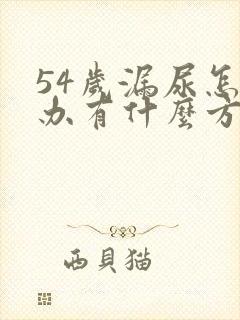 54歲漏尿怎
办有什麼方
西貝猫